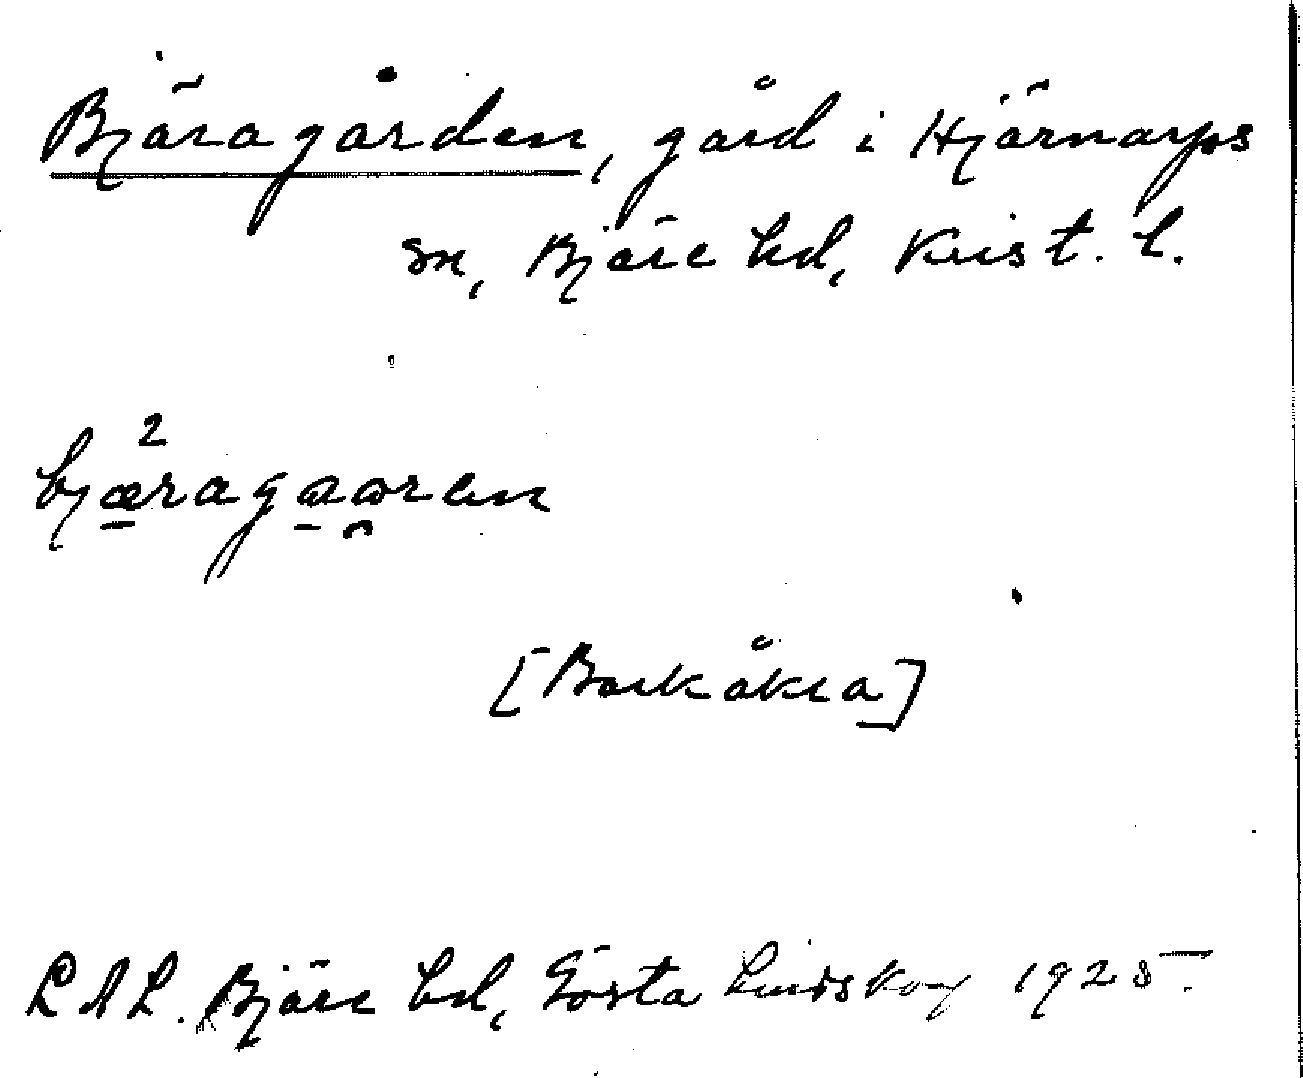 Bjäragården, gård i Hjärnarps
sn, Bjäre hd, Krist. l.
2
bjæragaaren
[Barkåkra]
L A L. Bjäre hd, Gösta Lindskog 1925.